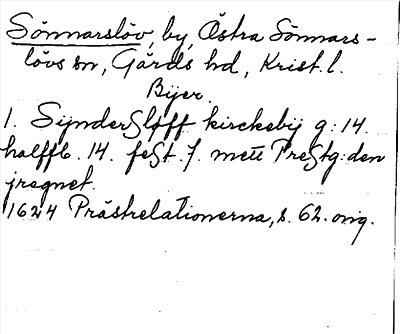 Sönnarslöv, by, Östra Sönnars-
lövs sn, Gärds hd, Krist. l.
Bijer.
1. Synderßløff kirckebÿ g: 14.
halffb. 14. feßt 7. mett Preßtg: den
jregnet.
1624 Prästrelationerna, s. 62. orig.